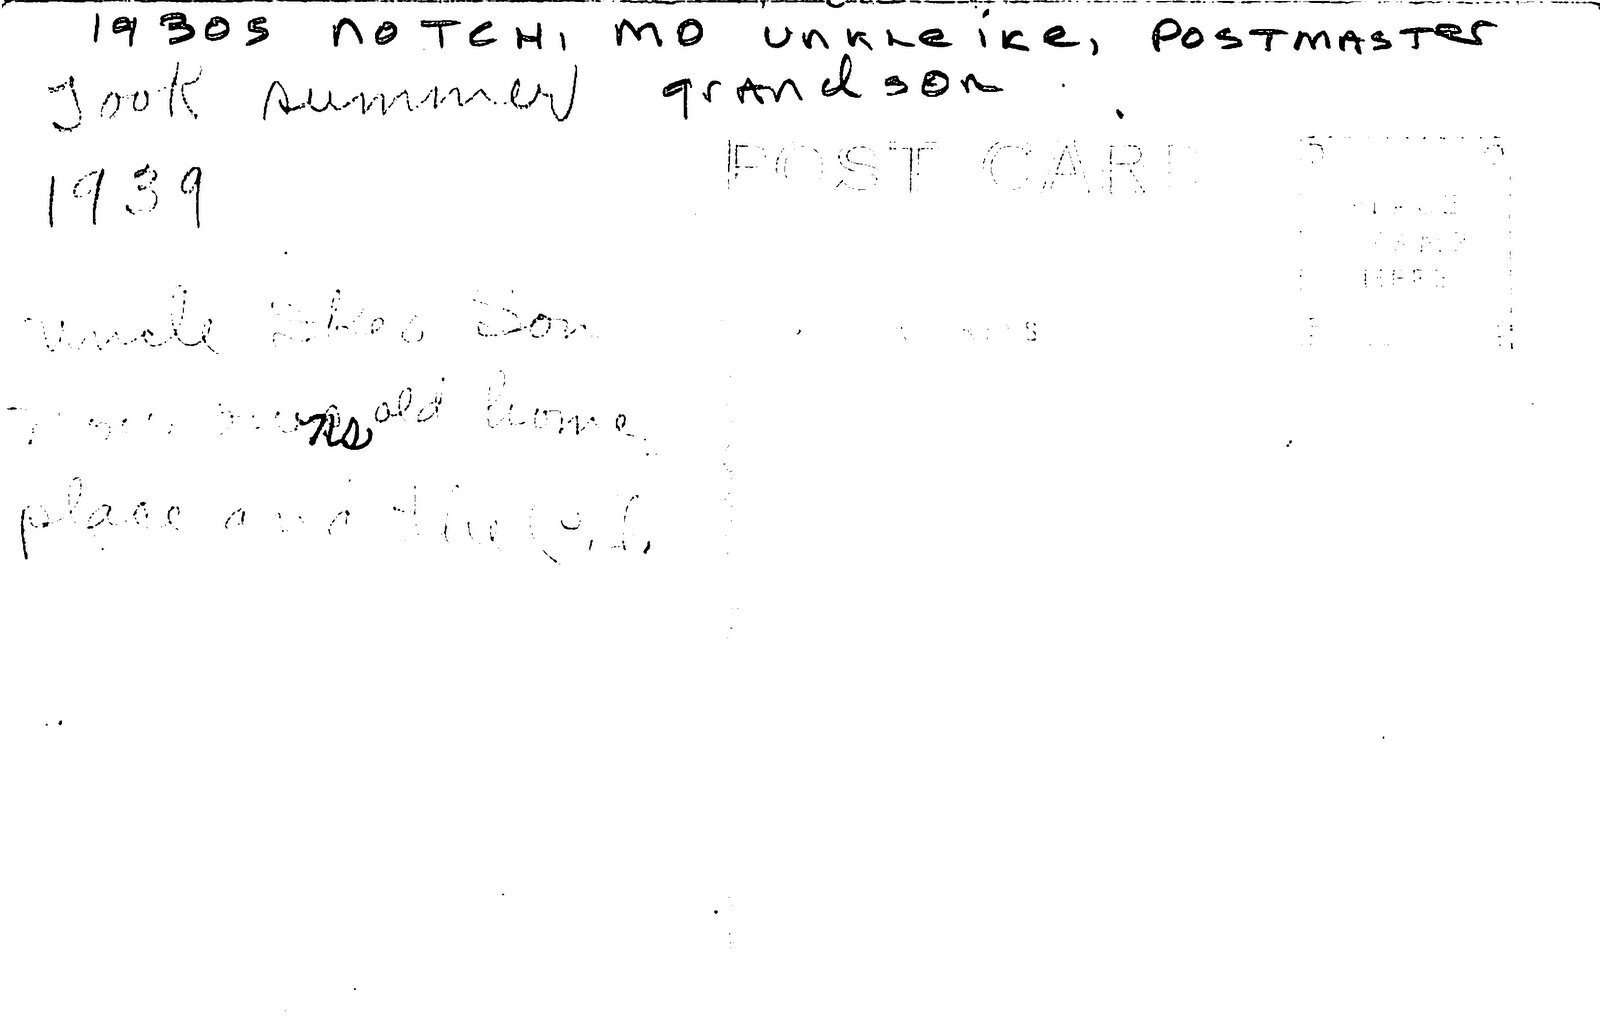 1930s NOTCH, MO UNKLE IKE, POSTMASTER
Took summer grandson
1939
POST CARD
PLACE
STAMP
HERE
uncle Ikes Son
old home
place and the P.O.